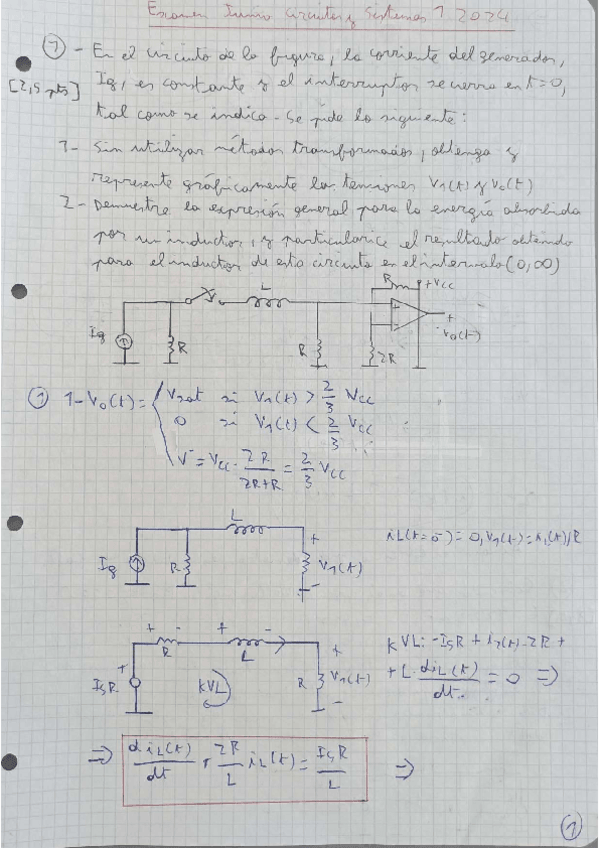 Examen Junio Circuitos y Sistemas 1 2024
① - En el circuito de la figura, la corriente del generador,
[2,5 pts] Ig, es constante y el interruptor se cierra en t=0,
tal como se indica. Se pide lo siguiente:
1- Sin utilizar métodos transformados, obtenga y
represente gráficamente las tensiones V1(t) y V0(t)
2- Demuestre la expresión general para la energía absorbida
por un inductor, y particularice el resultado obtenido
para el inductor de este circuito en el intervalo (0,∞)
L
R
+Vcc
+
-
+
Vo(t)
-
Ig
R
R
2R
① 1- Vo(t) = { Vsat si V1(t) > 2/3 Vcc
0 si V1(t) < 2/3 Vcc
V⁻ = Vcc · 2R/(2R+R) = 2/3 Vcc
L
Ig
R
+
V1(t)
-
iL(t=0⁻) = 0, V1(t) = iL(t)/R
+ - + -
R
L
+
IgR
KVL
R
+
V1(t)
-
KVL: -IgR + iL(t)·2R +
+ L · diL(t)/dt = 0 ⇒
⇒ diL(t)/dt + 2R/L iL(t) = IgR/L ⇒
①